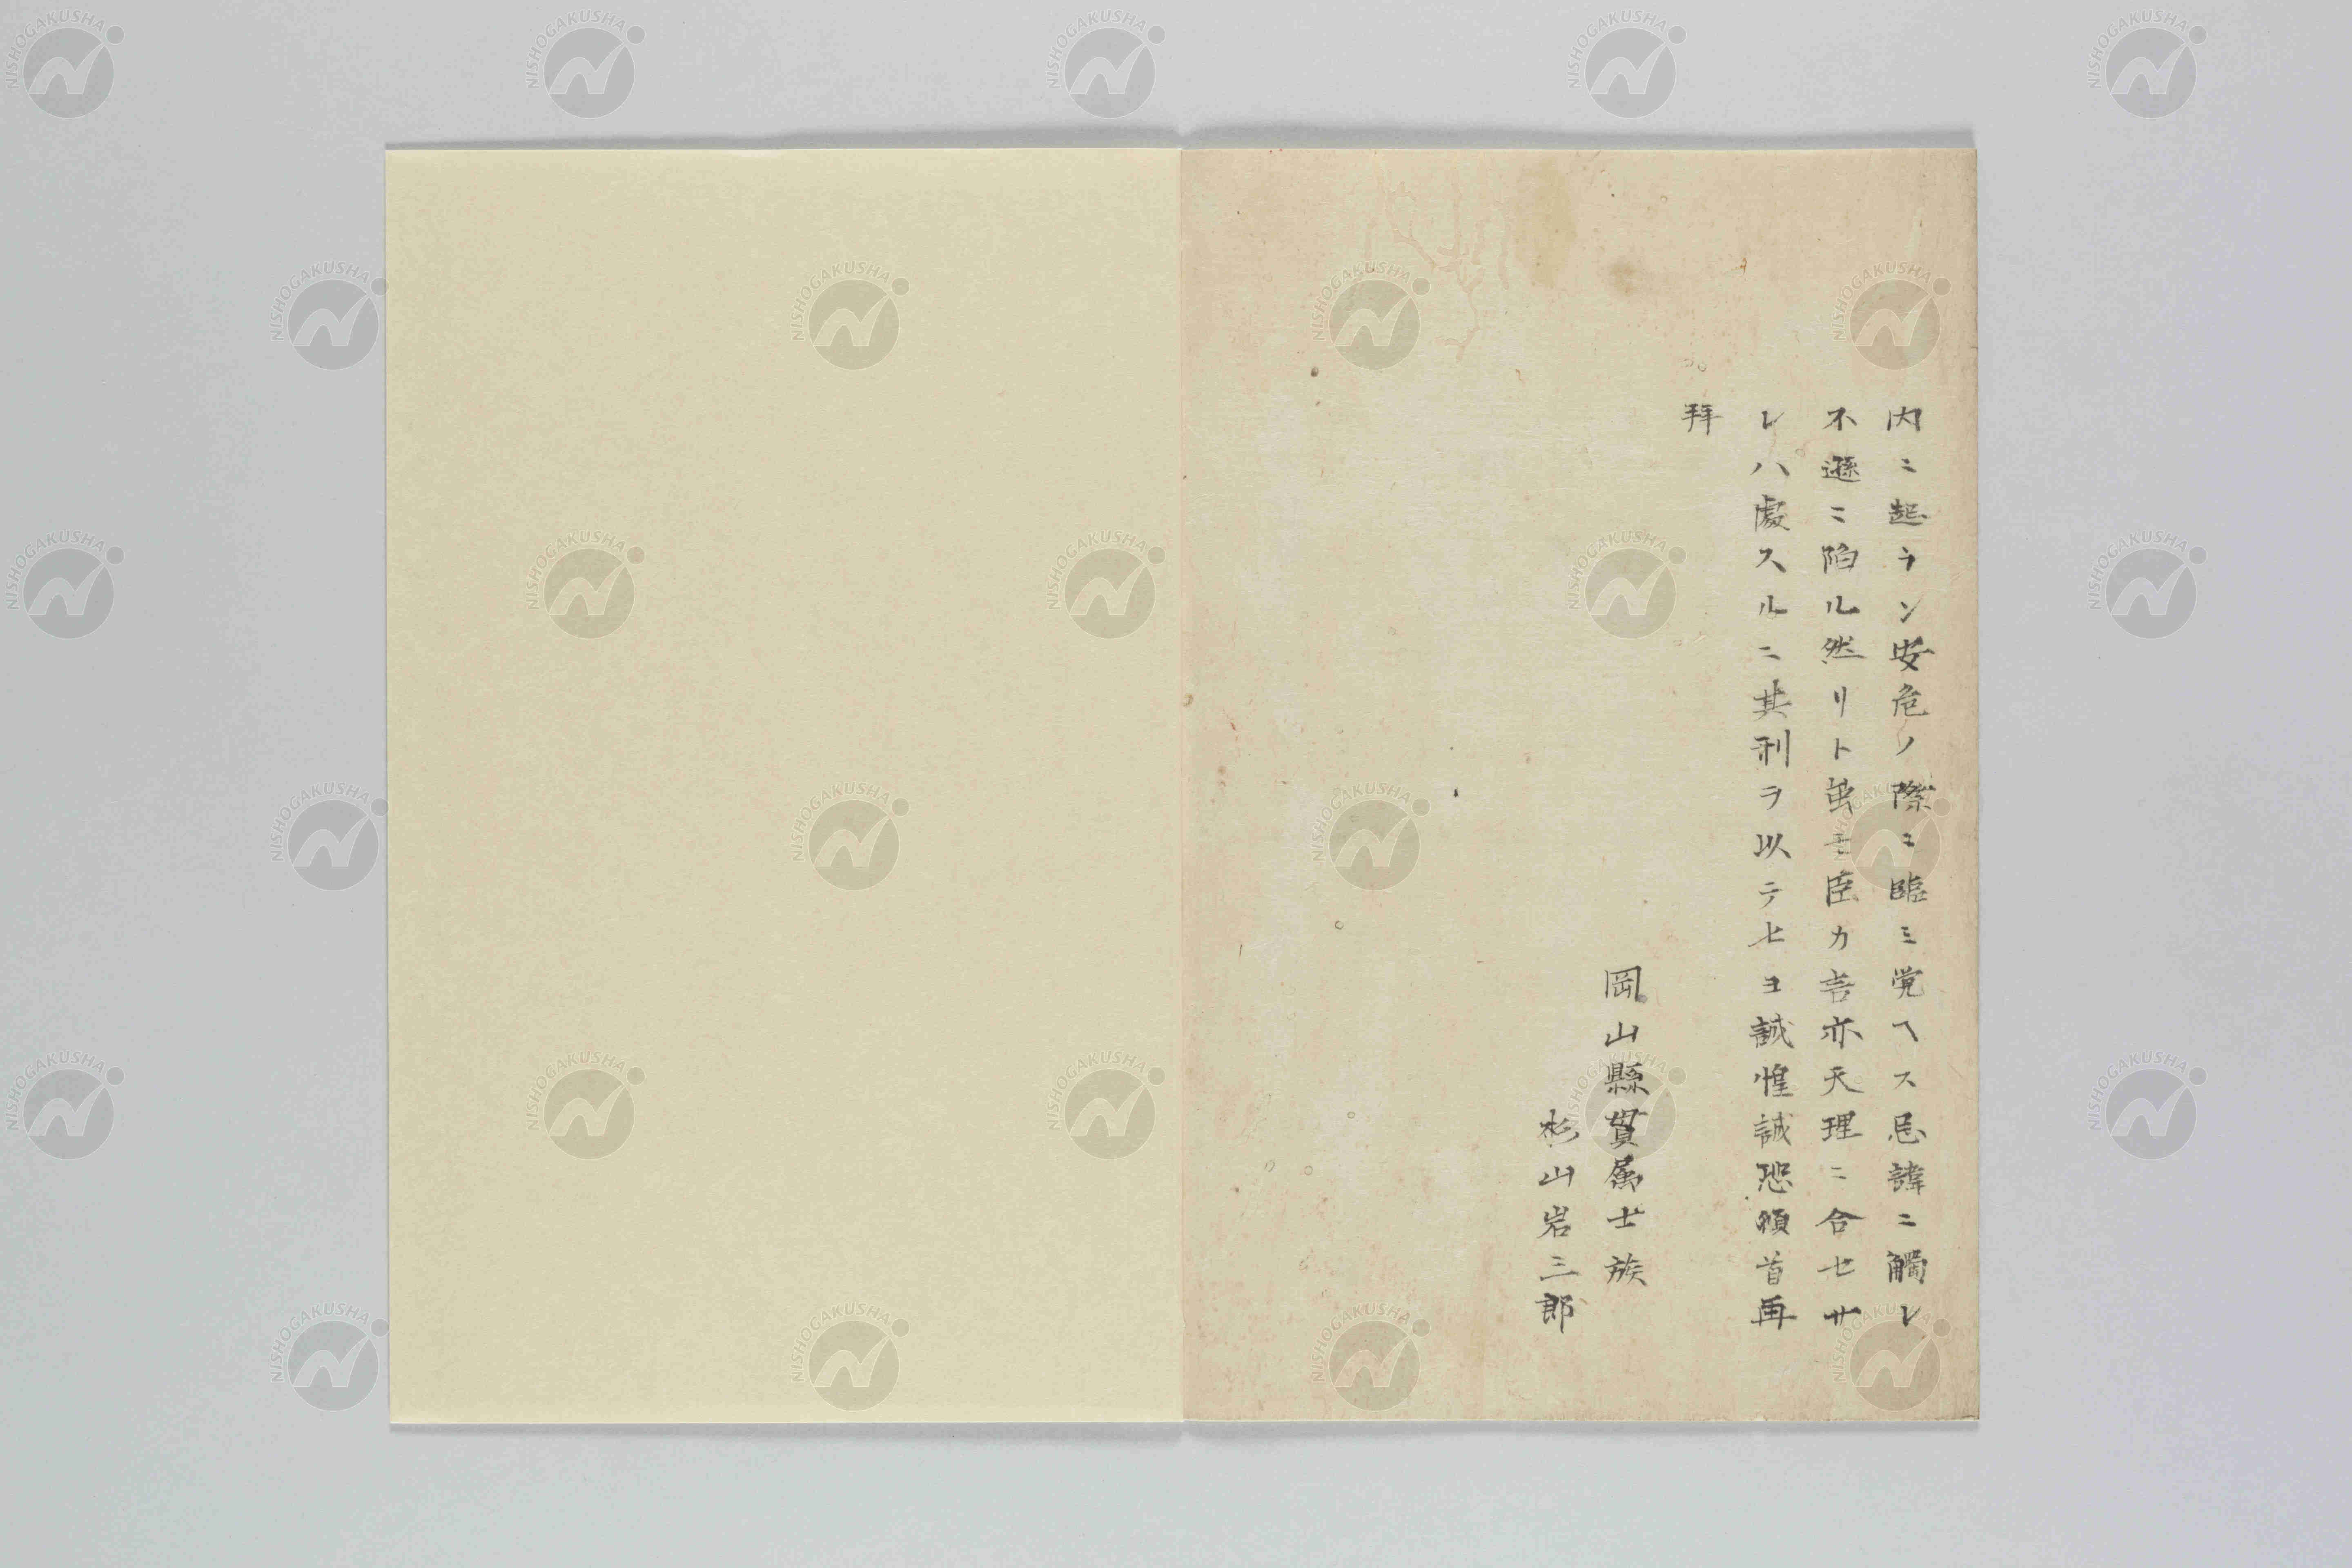 内ニ起ラン安危ノ際ニ臨ミ覚ヘス忌諱ニ觸レ
不遜ニ陥ル然リト虽モ臣カ言亦天理ニ合セサ
レハ處スルニ其刑ヲ以テセヨ誠惶誠恐頓首再
拜
岡山縣貫属士族
杉山岩三郎
NISHOGAKUSHA